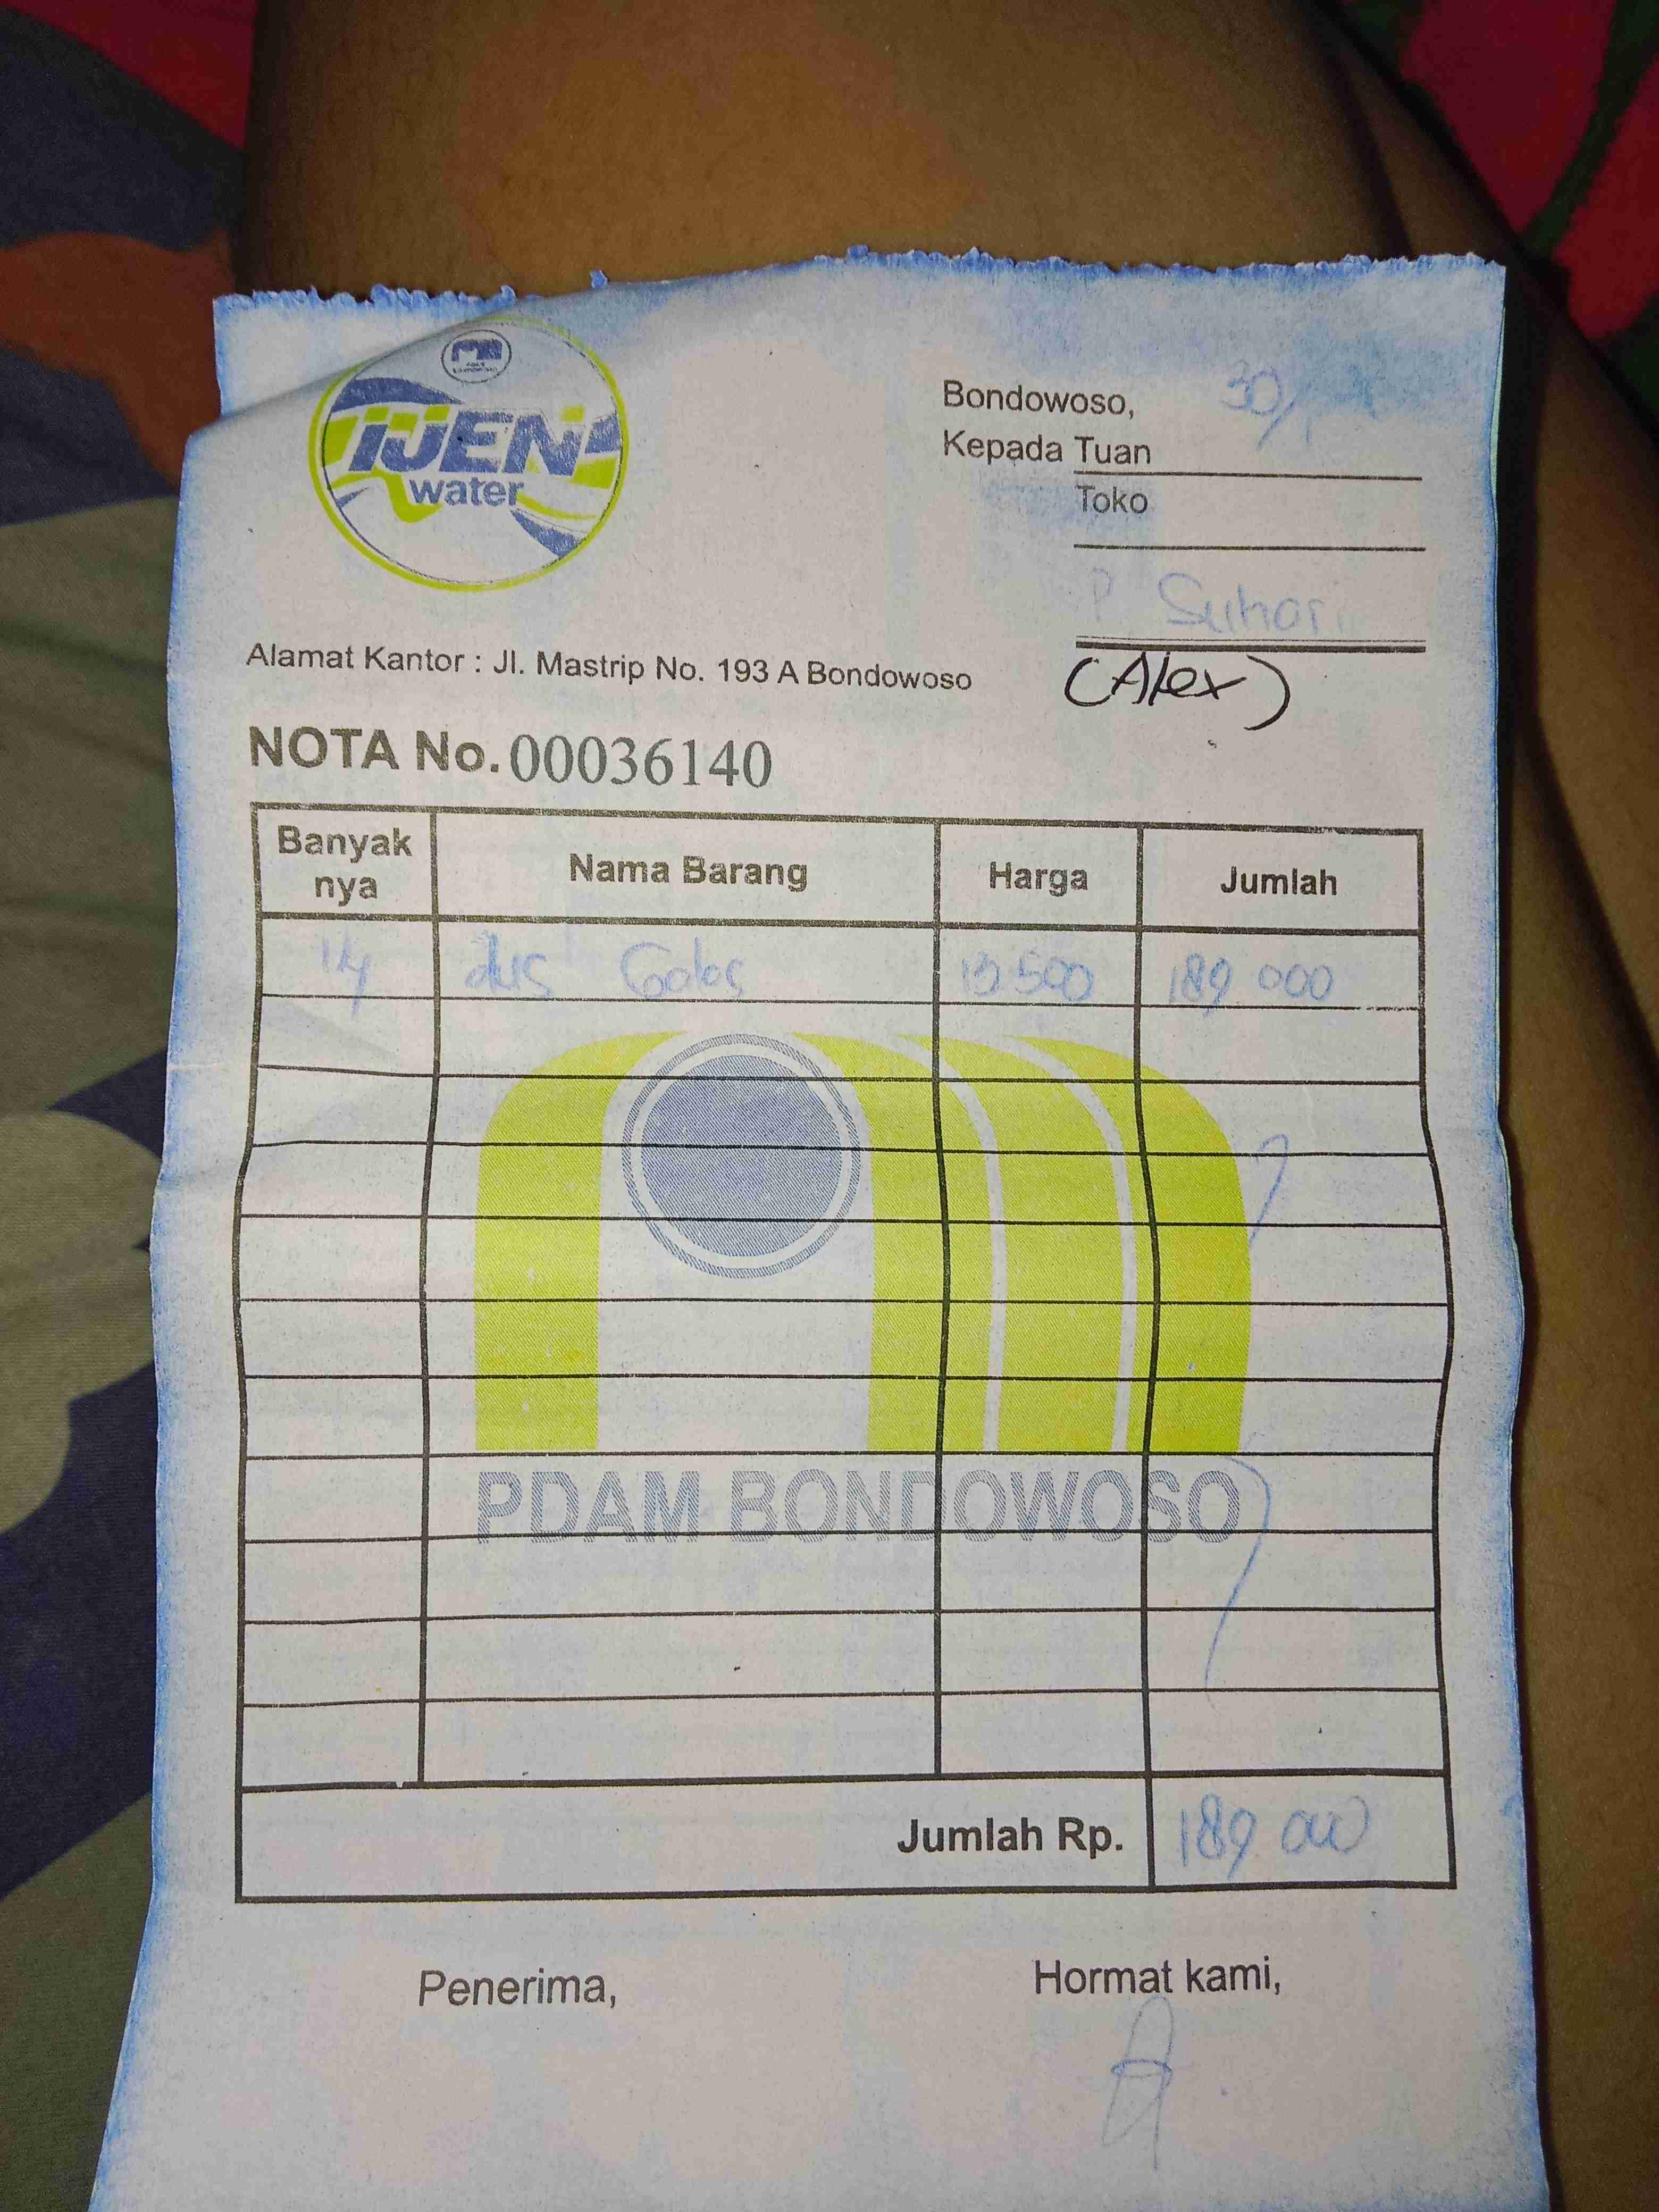 IJEN
water
Bondowoso, 30/
Kepada Tuan
Toko
P Suhari
(Alex)
Alamat Kantor : Jl. Mastrip No. 193 A Bondowoso
NOTA No. 00036140
Banyak nya Nama Barang Harga Jumlah
14 dus Gelas 13 500 189 000
PDAM BONDOWOSO
Jumlah Rp. 189 000
Penerima, Hormat kami,